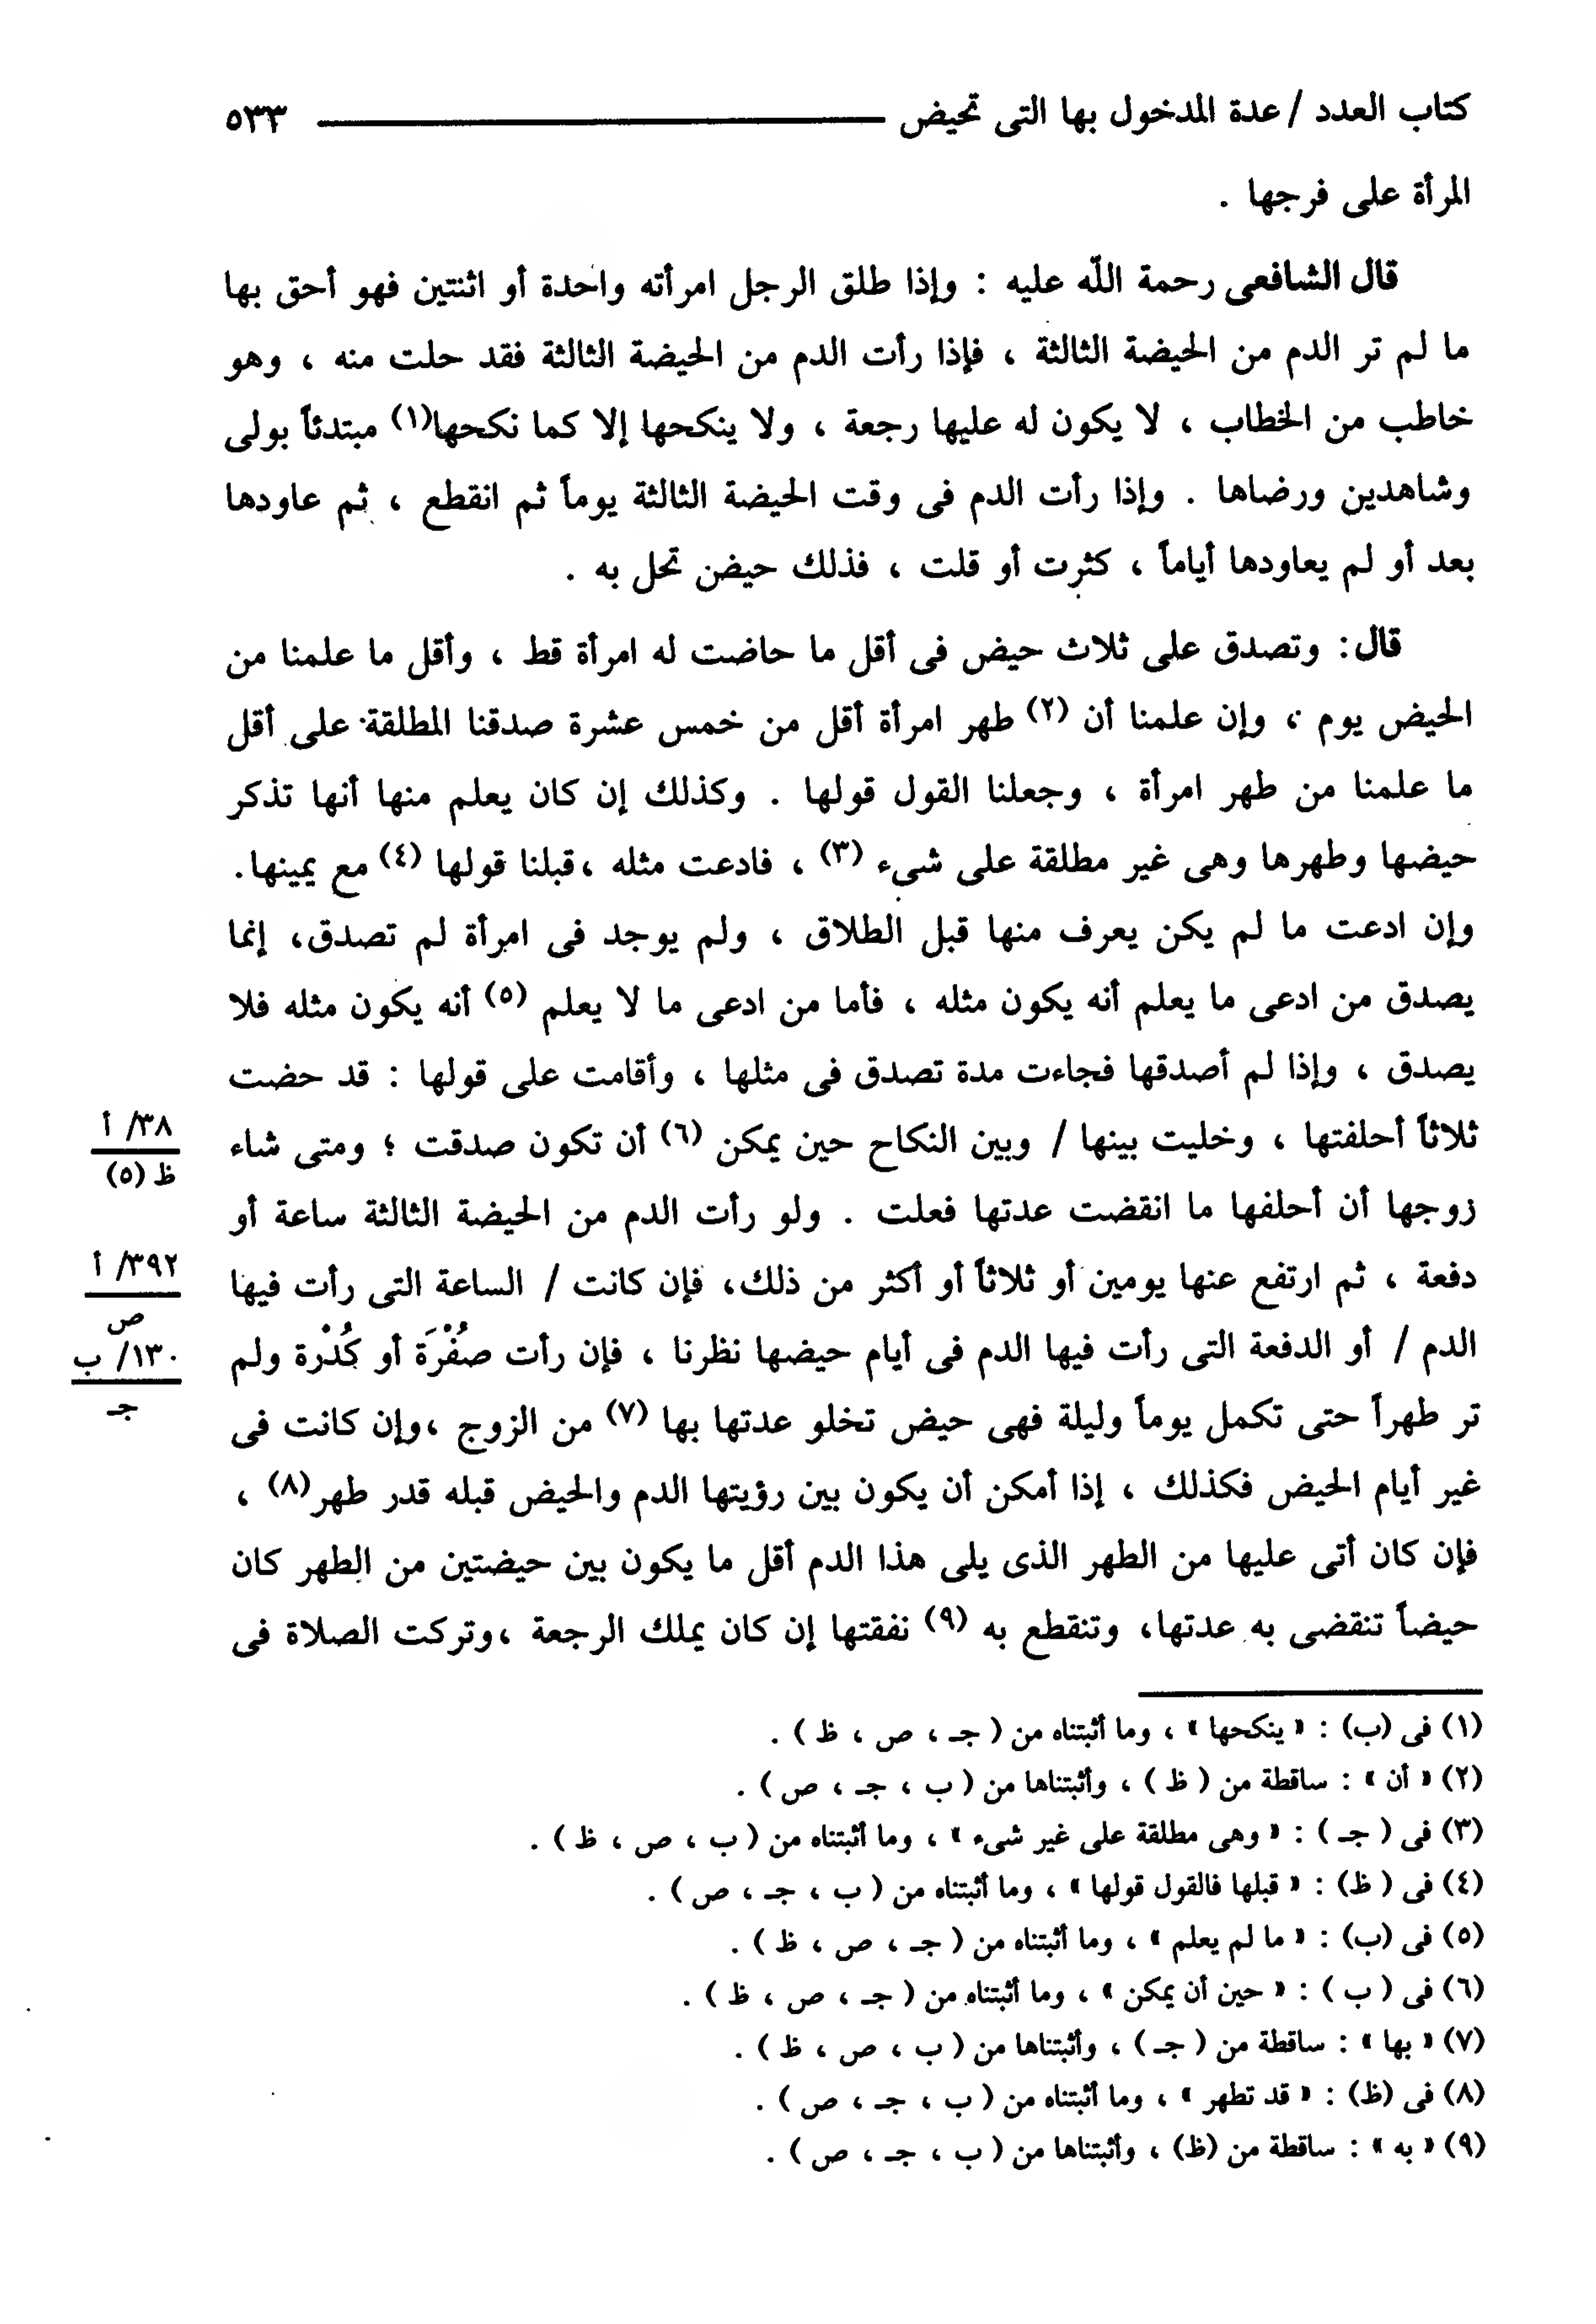 كتاب العدد / عدة المدخول بها التى تحيض ـــــــ ٥٣٣
المرأة على فرجها .
قال الشافعى رحمة اللّه عليه : وإذا طلق الرجل امرأته واحدة أو اثنتين فهو أحق بها
ما لم تر الدم من الحيضة الثالثة ، فإذا رأت الدم من الحيضة الثالثة فقد حلت منه ، وهو
خاطب من الخطاب ، لا يكون له عليها رجعة ، ولا ينكحها إلا كما نكحها(١) مبتدئاً بولى
وشاهدين ورضاها . وإذا رأت الدم فى وقت الحيضة الثالثة يوماً ثم انقطع ، ثم عاودها
بعد أو لم يعاودها أياماً ، كثرت أو قلت ، فذلك حيض تحل به .
قال: وتصدق على ثلاث حيض فى أقل ما حاضت له امرأة قط ، وأقل ما علمنا من
الحيض يوم ، وإن علمنا أن (٢) طهر امرأة أقل من خمس عشرة صدقنا المطلقة على أقل
ما علمنا من طهر امرأة ، وجعلنا القول قولها . وكذلك إن كان يعلم منها أنها تذكر
حيضها وطهرها وهى غير مطلقة على شىء (٣) ، فادعت مثله ،قبلنا قولها (٤) مع يمينها.
وإن ادعت ما لم يكن يعرف منها قبل الطلاق ، ولم يوجد فى امرأة لم تصدق، إنما
يصدق من ادعى ما يعلم أنه يكون مثله ، فأما من ادعى ما لا يعلم (٥) أنه يكون مثله فلا
يصدق ، وإذا لم أصدقها فجاءت مدة تصدق فى مثلها ، وأقامت على قولها : قد حضت
ثلاثاً أحلفتها ، وخليت بينها / وبين النكاح حين يمكن (٦) أن تكون صدقت ؛ ومتى شاء
زوجها أن أحلفها ما انقضت عدتها فعلت . ولو رأت الدم من الحيضة الثالثة ساعة أو
دفعة ، ثم ارتفع عنها يومين أو ثلاثاً أو أكثر من ذلك، فإن كانت / الساعة التى رأت فيها
الدم / أو الدفعة التى رأت فيها الدم فى أيام حيضها نظرنا ، فإن رأت صُفْرَة أو كُدْرة ولم
تر طهراً حتى تكمل يوماً وليلة فهى حيض تخلو عدتها بها (٧) من الزوج ،وإن كانت فى
غير أيام الحيض فكذلك ، إذا أمكن أن يكون بين رؤيتها الدم والحيض قبله قدر طهر(٨) ،
فإن كان أتى عليها من الطهر الذى يلى هذا الدم أقل ما يكون بين حيضتين من الطهر كان
حيضاً تنقضى به عدتها، وتنقطع به (٩) نفقتها إن كان يملك الرجعة ،وتركت الصلاة فى
٣٨/ أ
ظ (٥)
٣٩٢/ أ
ص
١٣٠/ ب
جـ
(١) فى (ب) : « ينكحها » ، وما أثبتناه من ( جـ ، ص ، ظ ) .
(٢) « أن » : ساقطة من ( ظ ) ، وأثبتناها من ( ب ، جـ ، ص ) .
(٣) فى ( جـ ) : « وهى مطلقة على غير شىء » ، وما أثبتناه من ( ب ، ص ، ظ ) .
(٤) فى ( ظ) : « قبلها فالقول قولها » ، وما أثبتناه من ( ب ، جـ ، ص ) .
(٥) فى (ب) : « ما لم يعلم » ، وما أثبتناه من ( جـ ، ص ، ظ ) .
(٦) فى ( ب ) : « حين أن يمكن » ، وما أثبتناه من ( جـ ، ص ، ظ ) .
(٧) « بها » : ساقطة من ( جـ ) ، وأثبتناها من ( ب ، ص ، ظ ) .
(٨) فى (ظ) : « قد تطهر » ، وما أثبتناه من ( ب ، جـ ، ص ) .
(٩) « به » : ساقطة من (ظ) ، وأثبتناها من ( ب ، جـ ، ص ) .